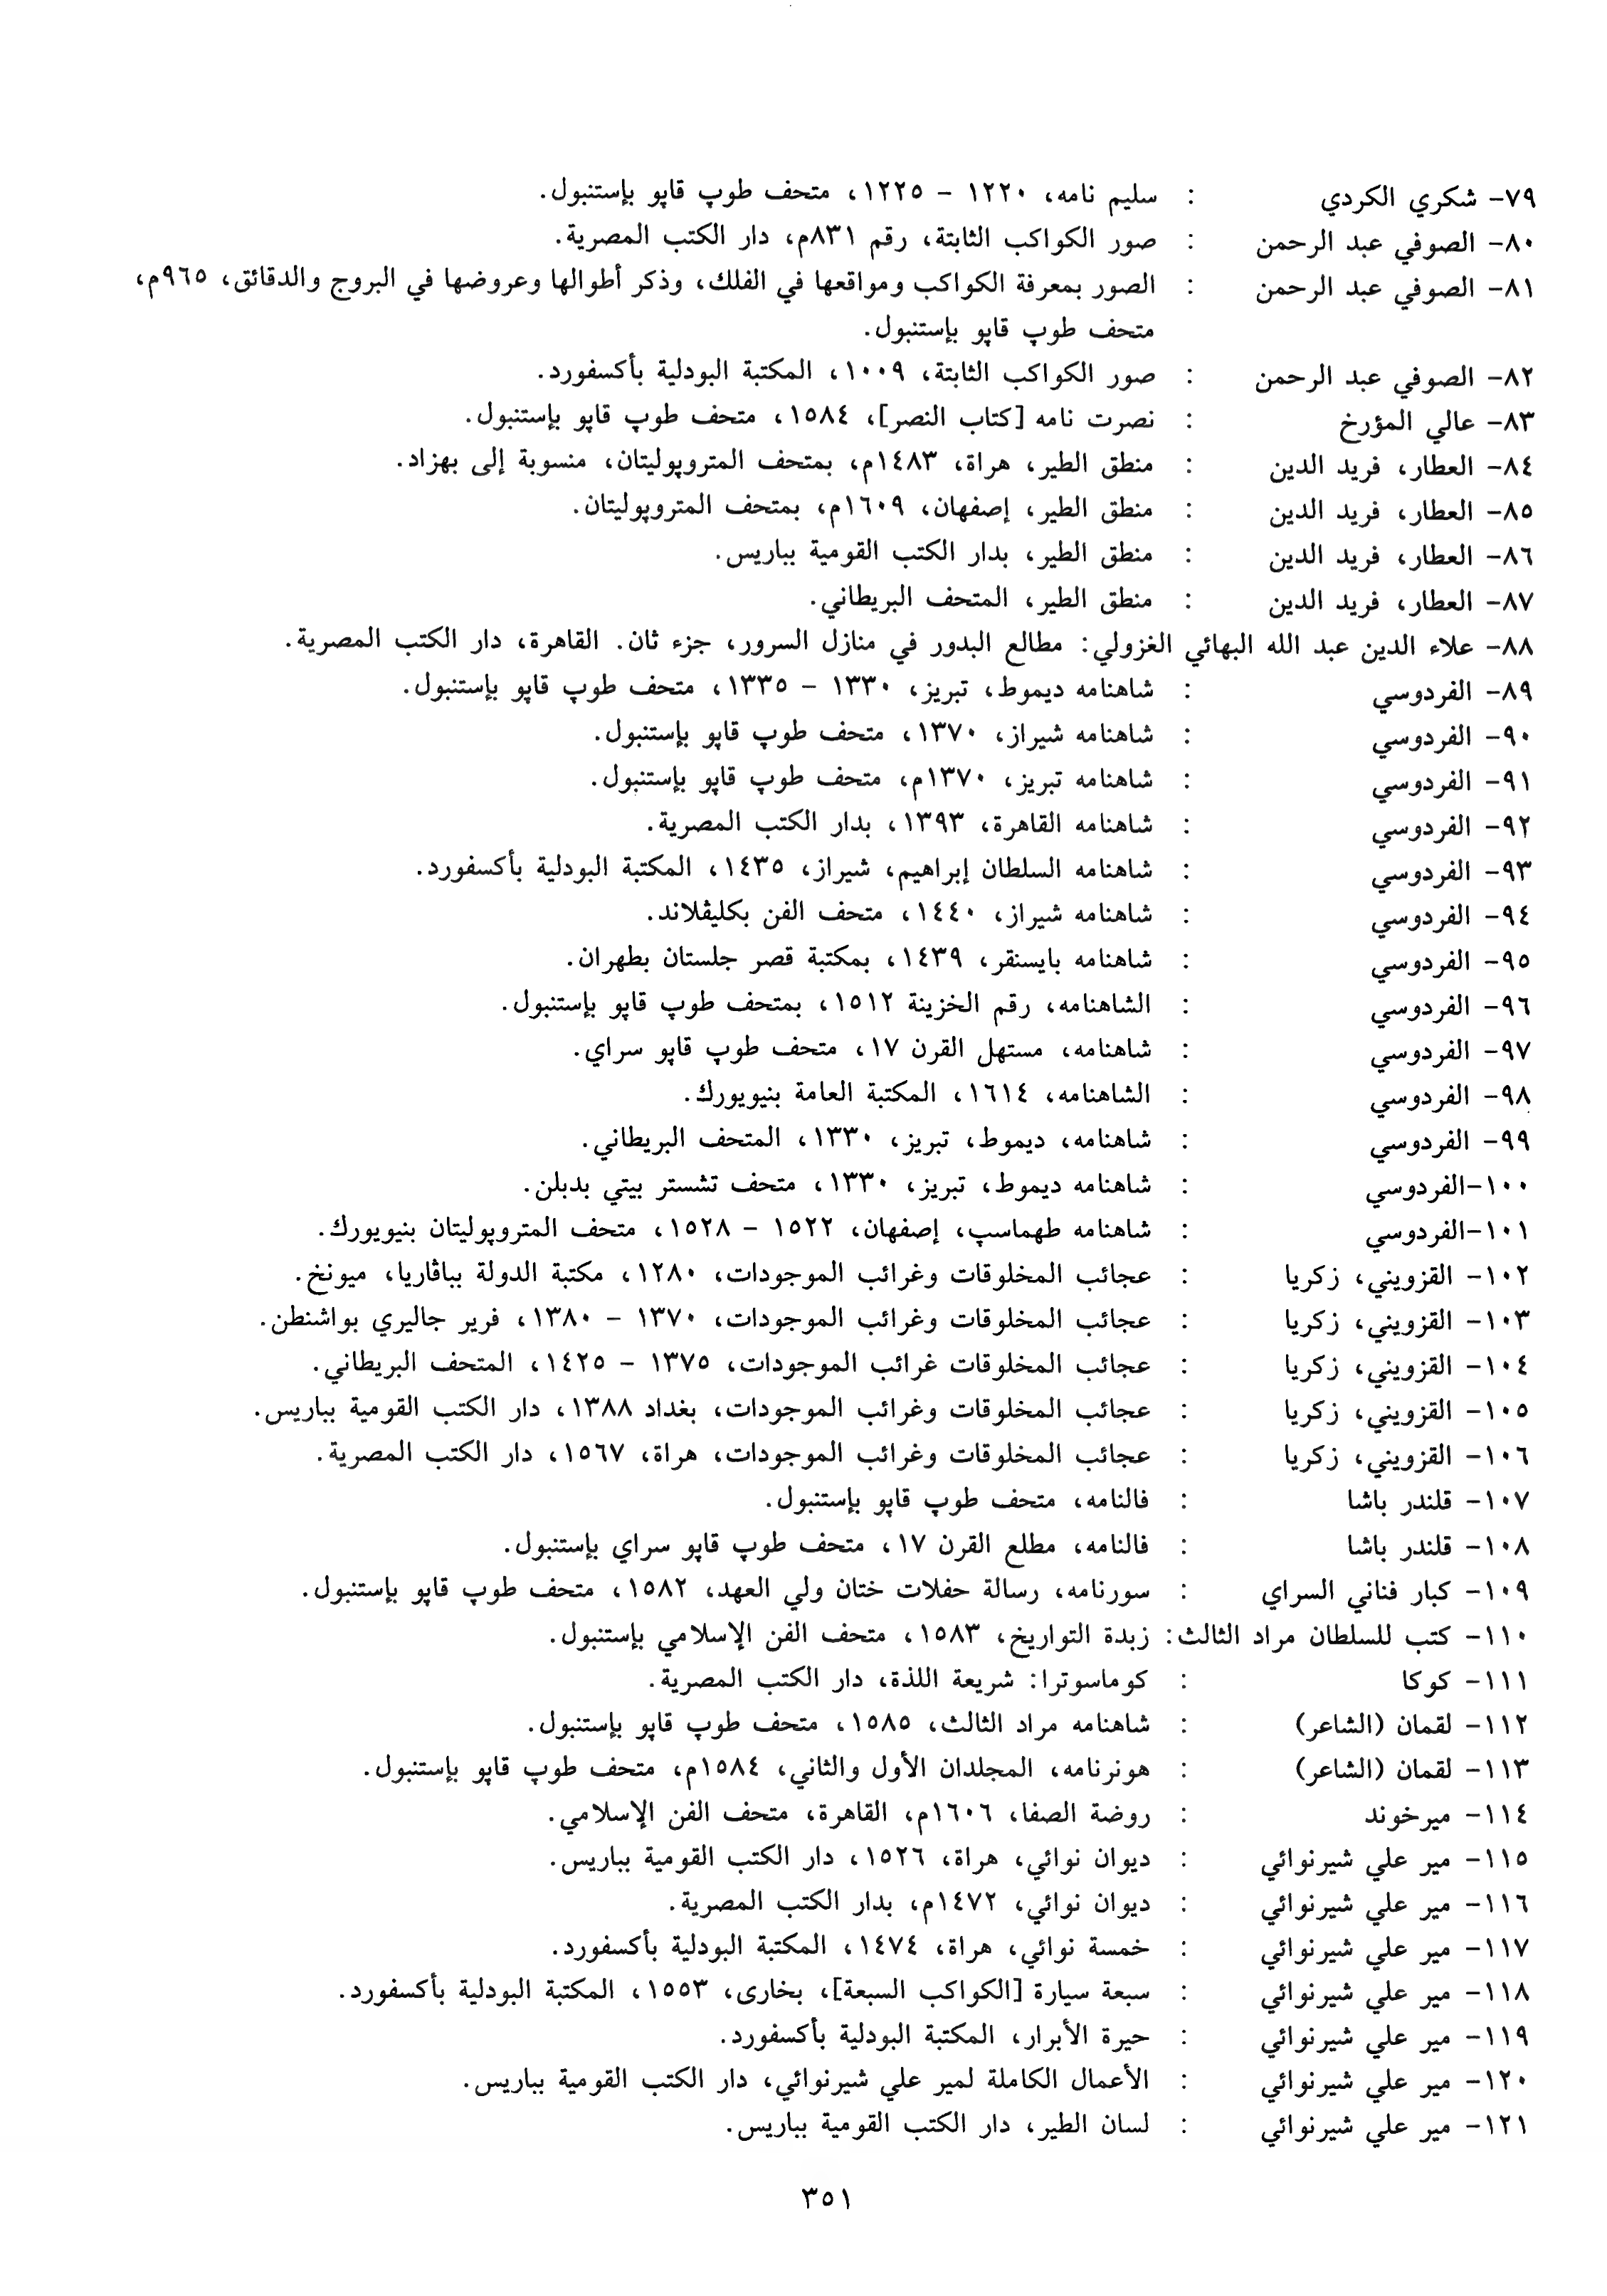 ٧٩- شكري الكردي : سليم نامه، ١٢٢٠ - ١٢٢٥، متحف طوپ قاپو بإستنبول.
٨٠- الصوفي عبد الرحمن : صور الكواكب الثابتة، رقم ٨٣١م، دار الكتب المصرية.
٨١- الصوفي عبد الرحمن : الصور بمعرفة الكواكب ومواقعها في الفلك، وذكر أطوالها وعروضها في البروج والدقائق، ٩٦٥م،
متحف طوپ قاپو بإستنبول.
٨٢- الصوفي عبد الرحمن : صور الكواكب الثابتة، ١٠٠٩، المكتبة البودلية بأكسفورد.
٨٣- عالي المؤرخ : نصرت نامه [كتاب النصر]، ١٥٨٤، متحف طوپ قاپو بإستنبول.
٨٤- العطار، فريد الدين : منطق الطير، هراة، ١٤٨٣م، بمتحف المتروپوليتان، منسوبة إلى بهزاد.
٨٥- العطار، فريد الدين : منطق الطير، إصفهان، ١٦٠٩م، بمتحف المتروپوليتان.
٨٦- العطار، فريد الدين : منطق الطير، بدار الكتب القومية بباريس.
٨٧- العطار، فريد الدين : منطق الطير، المتحف البريطاني.
٨٨- علاء الدين عبد الله البهائي الغزولي: مطالع البدور في منازل السرور، جزء ثان. القاهرة، دار الكتب المصرية.
٨٩- الفردوسي : شاهنامه ديموط، تبريز، ١٣٣٠ - ١٣٣٥، متحف طوپ قاپو بإستنبول.
٩٠- الفردوسي : شاهنامه شيراز، ١٣٧٠، متحف طوپ قاپو بإستنبول.
٩١- الفردوسي : شاهنامه تبريز، ١٣٧٠م، متحف طوپ قاپو بإستنبول.
٩٢- الفردوسي : شاهنامه القاهرة، ١٣٩٣، بدار الكتب المصرية.
٩٣- الفردوسي : شاهنامه السلطان إبراهيم، شيراز، ١٤٣٥، المكتبة البودلية بأكسفورد.
٩٤- الفردوسي : شاهنامه شيراز، ١٤٤٠، متحف الفن بكليڤلاند.
٩٥- الفردوسي : شاهنامه بايسنقر، ١٤٣٩، بمكتبة قصر جلستان بطهران.
٩٦- الفردوسي : الشاهنامه، رقم الخزينة ١٥١٢، بمتحف طوپ قاپو بإستنبول.
٩٧- الفردوسي : شاهنامه، مستهل القرن ١٧، متحف طوپ قاپو سراي.
٩٨- الفردوسي : الشاهنامه، ١٦١٤، المكتبة العامة بنيويورك.
٩٩- الفردوسي : شاهنامه، ديموط، تبريز، ١٣٣٠، المتحف البريطاني.
١٠٠-الفردوسي : شاهنامه ديموط، تبريز، ١٣٣٠، متحف تشستر بيتي بدبلن.
١٠١-الفردوسي : شاهنامه طهماسپ، إصفهان، ١٥٢٢ - ١٥٢٨، متحف المتروپوليتان بنيويورك.
١٠٢- القزويني، زكريا : عجائب المخلوقات وغرائب الموجودات، ١٢٨٠، مكتبة الدولة بباڤاريا، ميونخ.
١٠٣- القزويني، زكريا : عجائب المخلوقات وغرائب الموجودات، ١٣٧٠ - ١٣٨٠، فرير جاليري بواشنطن.
١٠٤- القزويني، زكريا : عجائب المخلوقات غرائب الموجودات، ١٣٧٥ - ١٤٢٥، المتحف البريطاني.
١٠٥- القزويني، زكريا : عجائب المخلوقات وغرائب الموجودات، بغداد ١٣٨٨، دار الكتب القومية بباريس.
١٠٦- القزويني، زكريا : عجائب المخلوقات وغرائب الموجودات، هراة، ١٥٦٧، دار الكتب المصرية.
١٠٧- قلندر باشا : فالنامه، متحف طوپ قاپو بإستنبول.
١٠٨- قلندر باشا : فالنامه، مطلع القرن ١٧، متحف طوپ قاپو سراي بإستنبول.
١٠٩- كبار فناني السراي : سورنامه، رسالة حفلات ختان ولي العهد، ١٥٨٢، متحف طوپ قاپو بإستنبول.
١١٠- كتب للسلطان مراد الثالث: زبدة التواريخ، ١٥٨٣، متحف الفن الإسلامي بإستنبول.
١١١- كوكا : كوماسوترا: شريعة اللذة، دار الكتب المصرية.
١١٢- لقمان (الشاعر) : شاهنامه مراد الثالث، ١٥٨٥، متحف طوپ قاپو بإستنبول.
١١٣- لقمان (الشاعر) : هونرنامه، المجلدان الأول والثاني، ١٥٨٤م، متحف طوپ قاپو بإستنبول.
١١٤- ميرخوند : روضة الصفا، ١٦٠٦م، القاهرة، متحف الفن الإسلامي.
١١٥- مير علي شيرنوائي : ديوان نوائي، هراة، ١٥٢٦، دار الكتب القومية بباريس.
١١٦- مير علي شيرنوائي : ديوان نوائي، ١٤٧٢م، بدار الكتب المصرية.
١١٧- مير علي شيرنوائي : خمسة نوائي، هراة، ١٤٧٤، المكتبة البودلية بأكسفورد.
١١٨- مير علي شيرنوائي : سبعة سيارة [الكواكب السبعة]، بخارى، ١٥٥٣، المكتبة البودلية بأكسفورد.
١١٩- مير علي شيرنوائي : حيرة الأبرار، المكتبة البودلية بأكسفورد.
١٢٠- مير علي شيرنوائي : الأعمال الكاملة لمير علي شيرنوائي، دار الكتب القومية بباريس.
١٢١- مير علي شيرنوائي : لسان الطير، دار الكتب القومية بباريس.
٣٥١